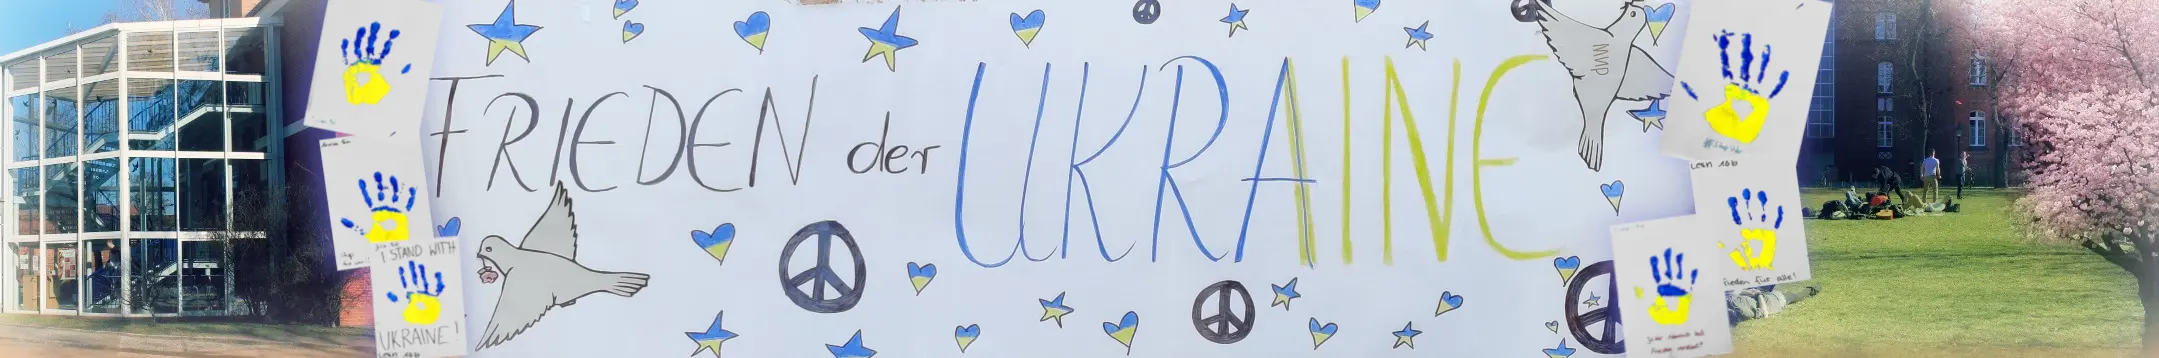 FRIEDEN der UKRAINE
MMP
I STAND WITH
UKRAINE!
Frieden für alle!